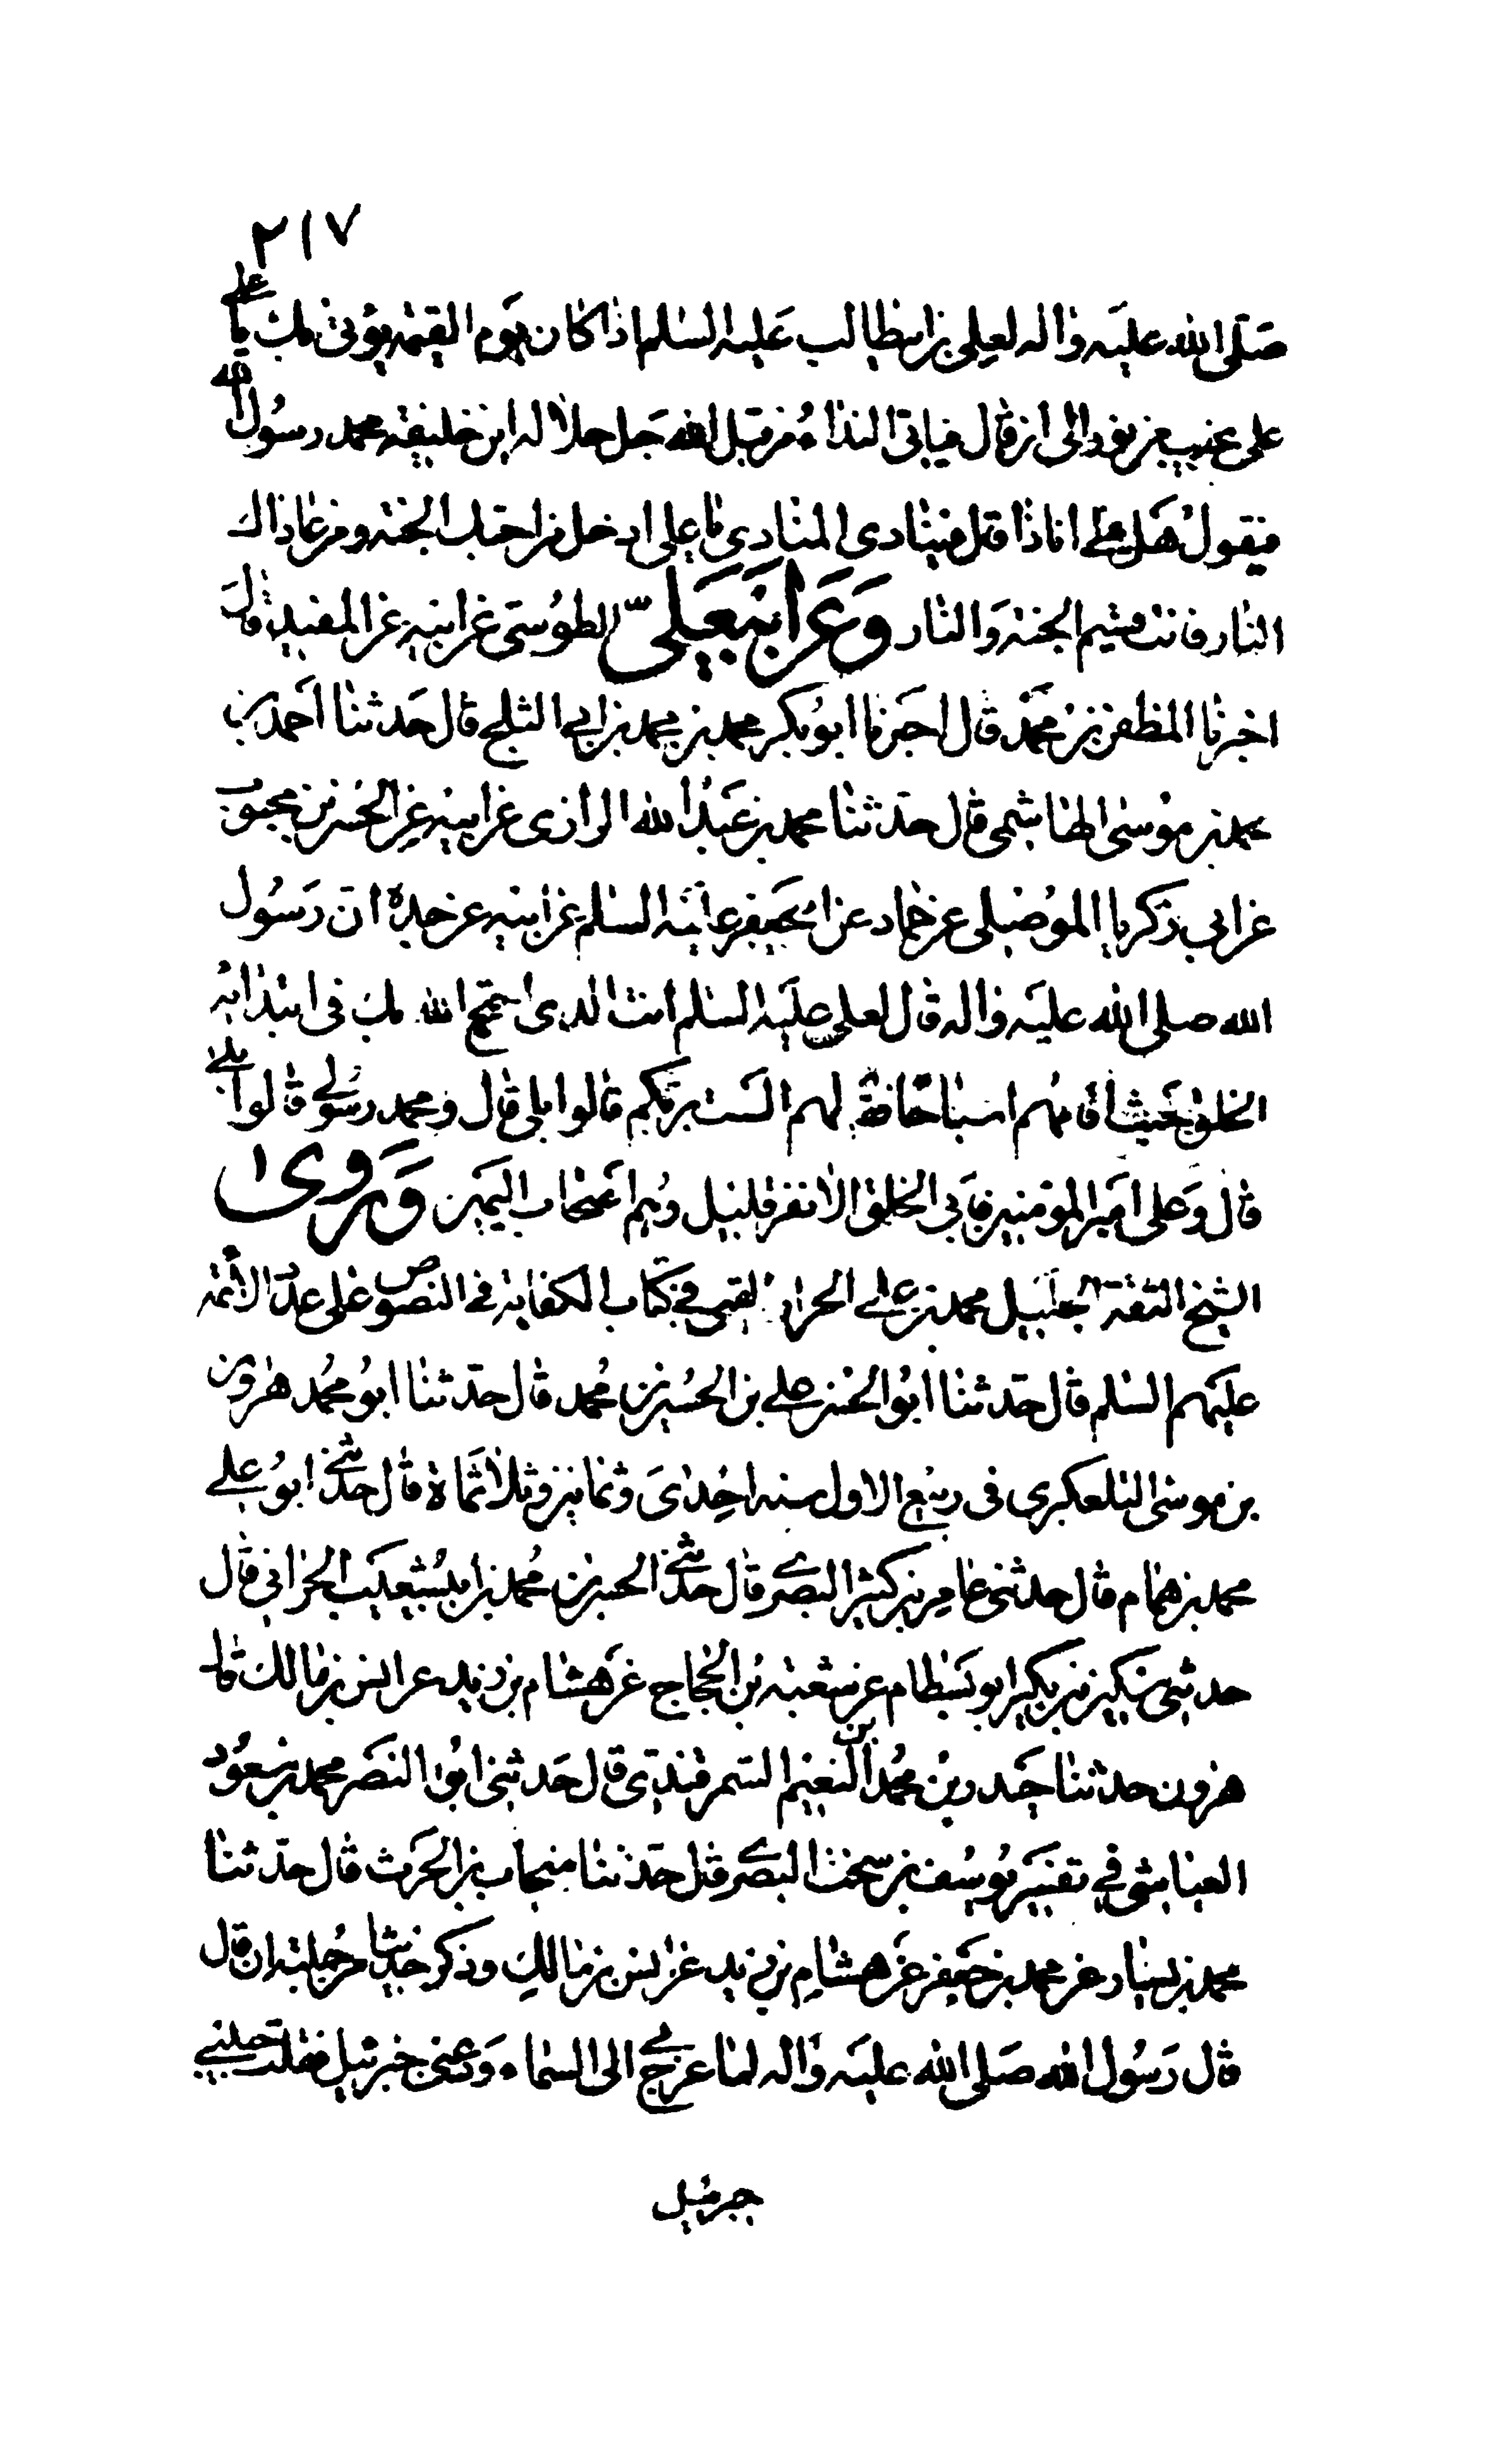 ٢١٧
صلى الله عليه واله لعلي بن ابيطالب عليه السلم اذا كان يوم القيمه يؤتى بك يا علي
على نجيب من نور الى ان قال فياتي النداء من قبل الله جل جلاله اين خليفة محمد رسول الله
فيقول علي ها انا ذا قال فينادى المنادي يا علي ادخل من احبك الجنه ومن عاداك
النار فانت قسيم الجنه والنار وعن ابي علي الطوسي عن ابيه عن المفيد قال
اخبرنا المظفر بن محمد قال اخبرنا ابو بكر محمد بن محمد بن ابي الثلج قال حدثنا احمد بن
محمد بن موسى الهاشمي قال حدثنا محمد بن عبد الله الرازي عن ابيه عن الحسن بن محبوب
عن ابي زكريا الموصلي عن جابر عن ابي جعفر عليه السلم عن ابيه عن جده ان رسول
الله صلى الله عليه واله قال لعلي عليه السلم انت الذي احتج الله بك في ابتدائه
الخلق حيث اقامهم اشباحا فقال لهم الست بربكم قالوا بلى قال ومحمد رسولي قالوا بلى
قال وعلي امير المؤمنين فابى الخلق الا نفر قليل وهم اصحاب اليمين وروى
الشيخ الثقة الجليل محمد بن علي الخزاز القمي في كتاب الكفاية في النصوص على عدد الائمه
عليهم السلم قال حدثنا ابو الحسن علي بن الحسين بن محمد قال حدثنا ابو محمد هرون
بن موسى التلعكبري في ربيع الاول سنه احدى وثمانين وثلاثماة قال حدثني ابو علي
محمد بن همام قال حدثني عامر بن كثير البصري قال حدثني الحسن بن محمد بن ابي شعيب الحراني قال
حدثني مسكين بن بكير ابو بسطام عن شعبة بن الحجاج عن هشام بن زيد عن انس بن مالك قال
هرون حدثنا حيدر بن محمد بن النعيم السمرقندي قال حدثني ابو النصر محمد بن مسعود
العياشي في تفسير يوسف بن سخت البصري قال حدثنا منجاب بن الحرث قال حدثنا
محمد بن بشار عن محمد بن جعفر عن هشام بن زيد عن انس بن مالك وذكر حديثا من جملته ان قال
قال رسول الله صلى الله عليه واله لما عرج بي الى السماء ودعني جبرئيل فقلت حبيبي
جبرئيل